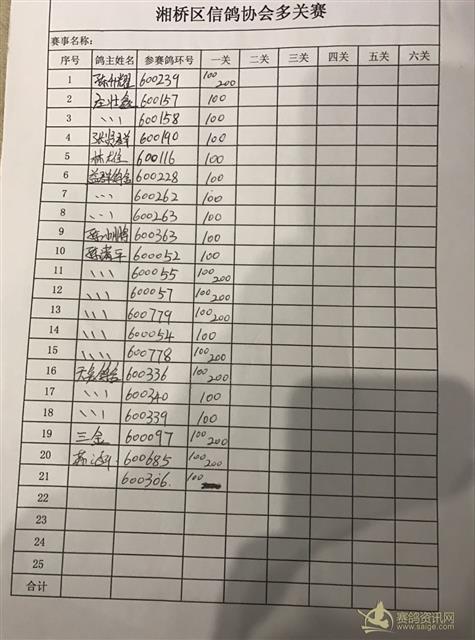 湘桥区信鸽协会多关赛
赛事名称：
序号 鸽主姓名 参赛鸽环号 一关 二关 三关 四关 五关 六关
1 600239 100 200
2 600157 100
3 、、、 600158 100
4 600190 100
5 600116 100
6 600228 100
7 、、、 600262 100
8 、、、 600263 100
9 600363 100
10 600052 100
11 、、、 600055 100 200
12 、、、 600057 100 200
13 、、、 600779 100 200
14 、、、 600054 100
15 、、、、 600778 100 200
16 600336 100 200
17 、、、 600340 100
18 、、、 600339 100
19 三金 600097 100 200
20 600685 100 200
21 600306. 100
22
23
24
25
合计
赛鸽资讯网
www.saige.com